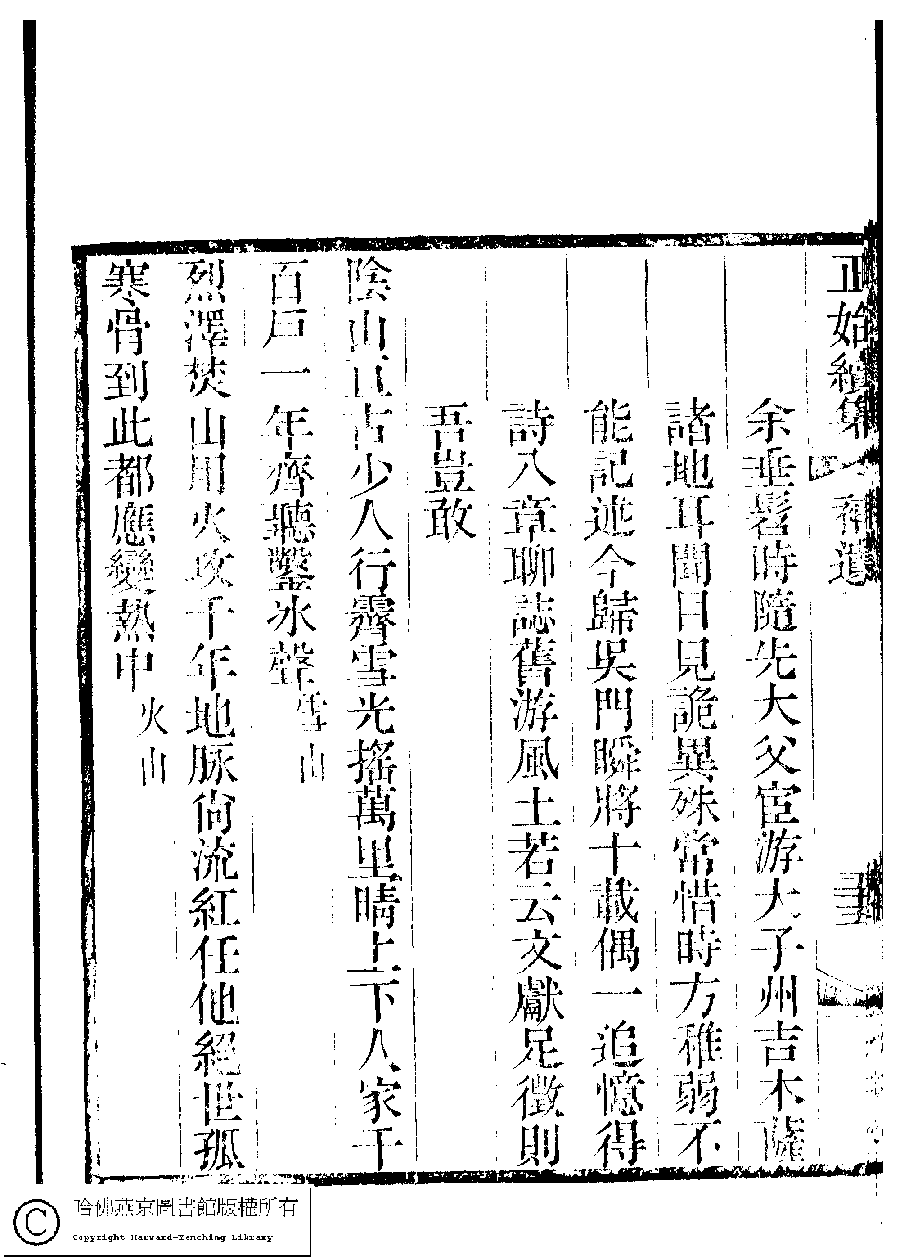 正始續集 補遺
余垂髫時隨先大父宦游大子州吉木薩
諸地耳聞目見詭異殊常惜時方稚弱不
能記述今歸吳門瞬將十載偶一追憶得
詩八章聊誌舊游風土若云文獻足徵則
吾豈敢
陰山亘古少人行霽雪光搖萬里晴上下人家千
百戶一年齊聽鑿冰聲雪山
烈澤焚山用火攻千年地脈尙流紅任他絕世孤
寒骨到此都應變熱中火山
哈佛燕京圖書館版權所有
Copyright Harvard-Yenching Library